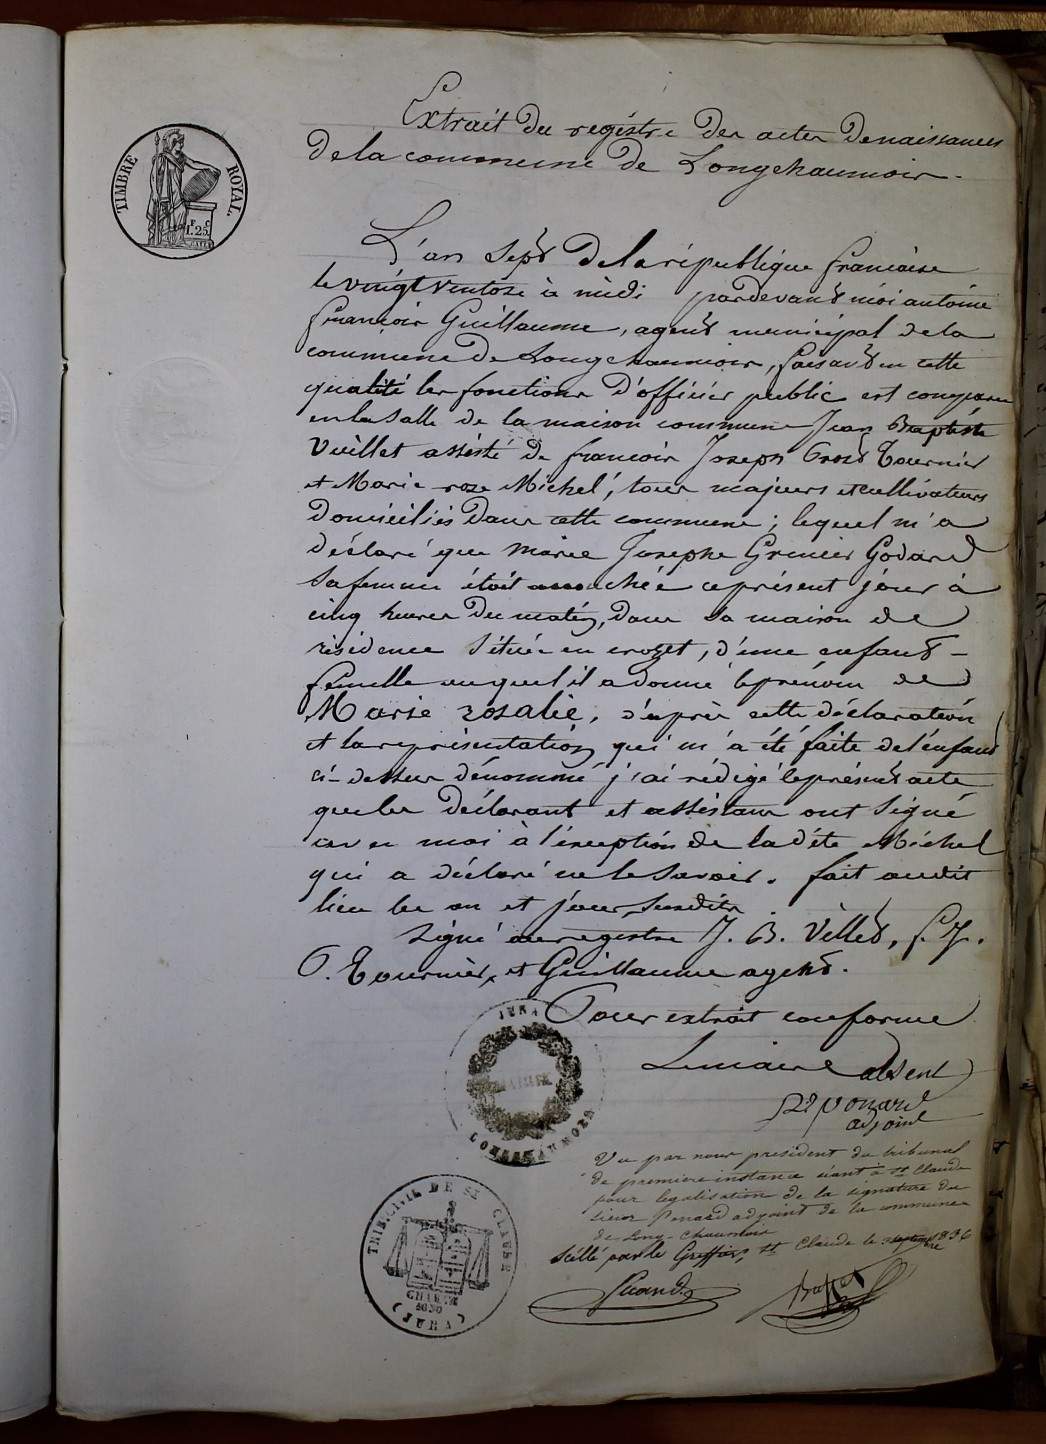 Extrait du registre des actes de naissances
de la commune de Longchaumois.
TIMBRE ROYAL.
F C
1.25
L'an Sept de la république francaise
le vingt ventose à midi pardevant moi antoine
francois Guillaume, agent municipal de la
commune de Longchaumois, faisant en cette
qualité les fonctions d'officier public est comparu
en la Salle de la maison commune Jean Baptiste
Vuillet assisté de francois Joseph Tournier
et Marie roze Michel, tous majeurs et cultivateurs
domiciliés dans cette commune ; lequel m'a
déclaré que Marie Josephe Grenier Godard
sa femme étoit accouchée ce présent jour à
cinq heures du matin, dans sa maison de
résidence Située en crozet, d'une enfant
femelle auquel il a donné le prénom de
Marie rosalie, d'après cette déclaration
et la représentation qui m'a été faite de l'enfant
ci-dessus dénommé j'ai rédigé le présent acte
que les déclarant et assistans ont Signé
avec moi à l'exception de la dite Michel
qui a déclaré ne le Savoir. fait audit
lieu les an et jour susdits.
Signé au registre J. B. Villet, f. J.
P. Tournier, et Guillaume agent.
Pour extrait conforme
Le maire absent
Ponard
adjoint
JURA
MAIRIE
LONGCHAUMOIS
Vu par nous président du tribunal
de premiere instance séant à St Claude
pour legalisation de la signature du
sieur Ponard adjoint de la commune
de Longchaumois
Scellé par le Greffier, St Claude le septembre 1836
TRIB. CIVIL DE ST CLAUDE
CHARTE
1830
(JURA)